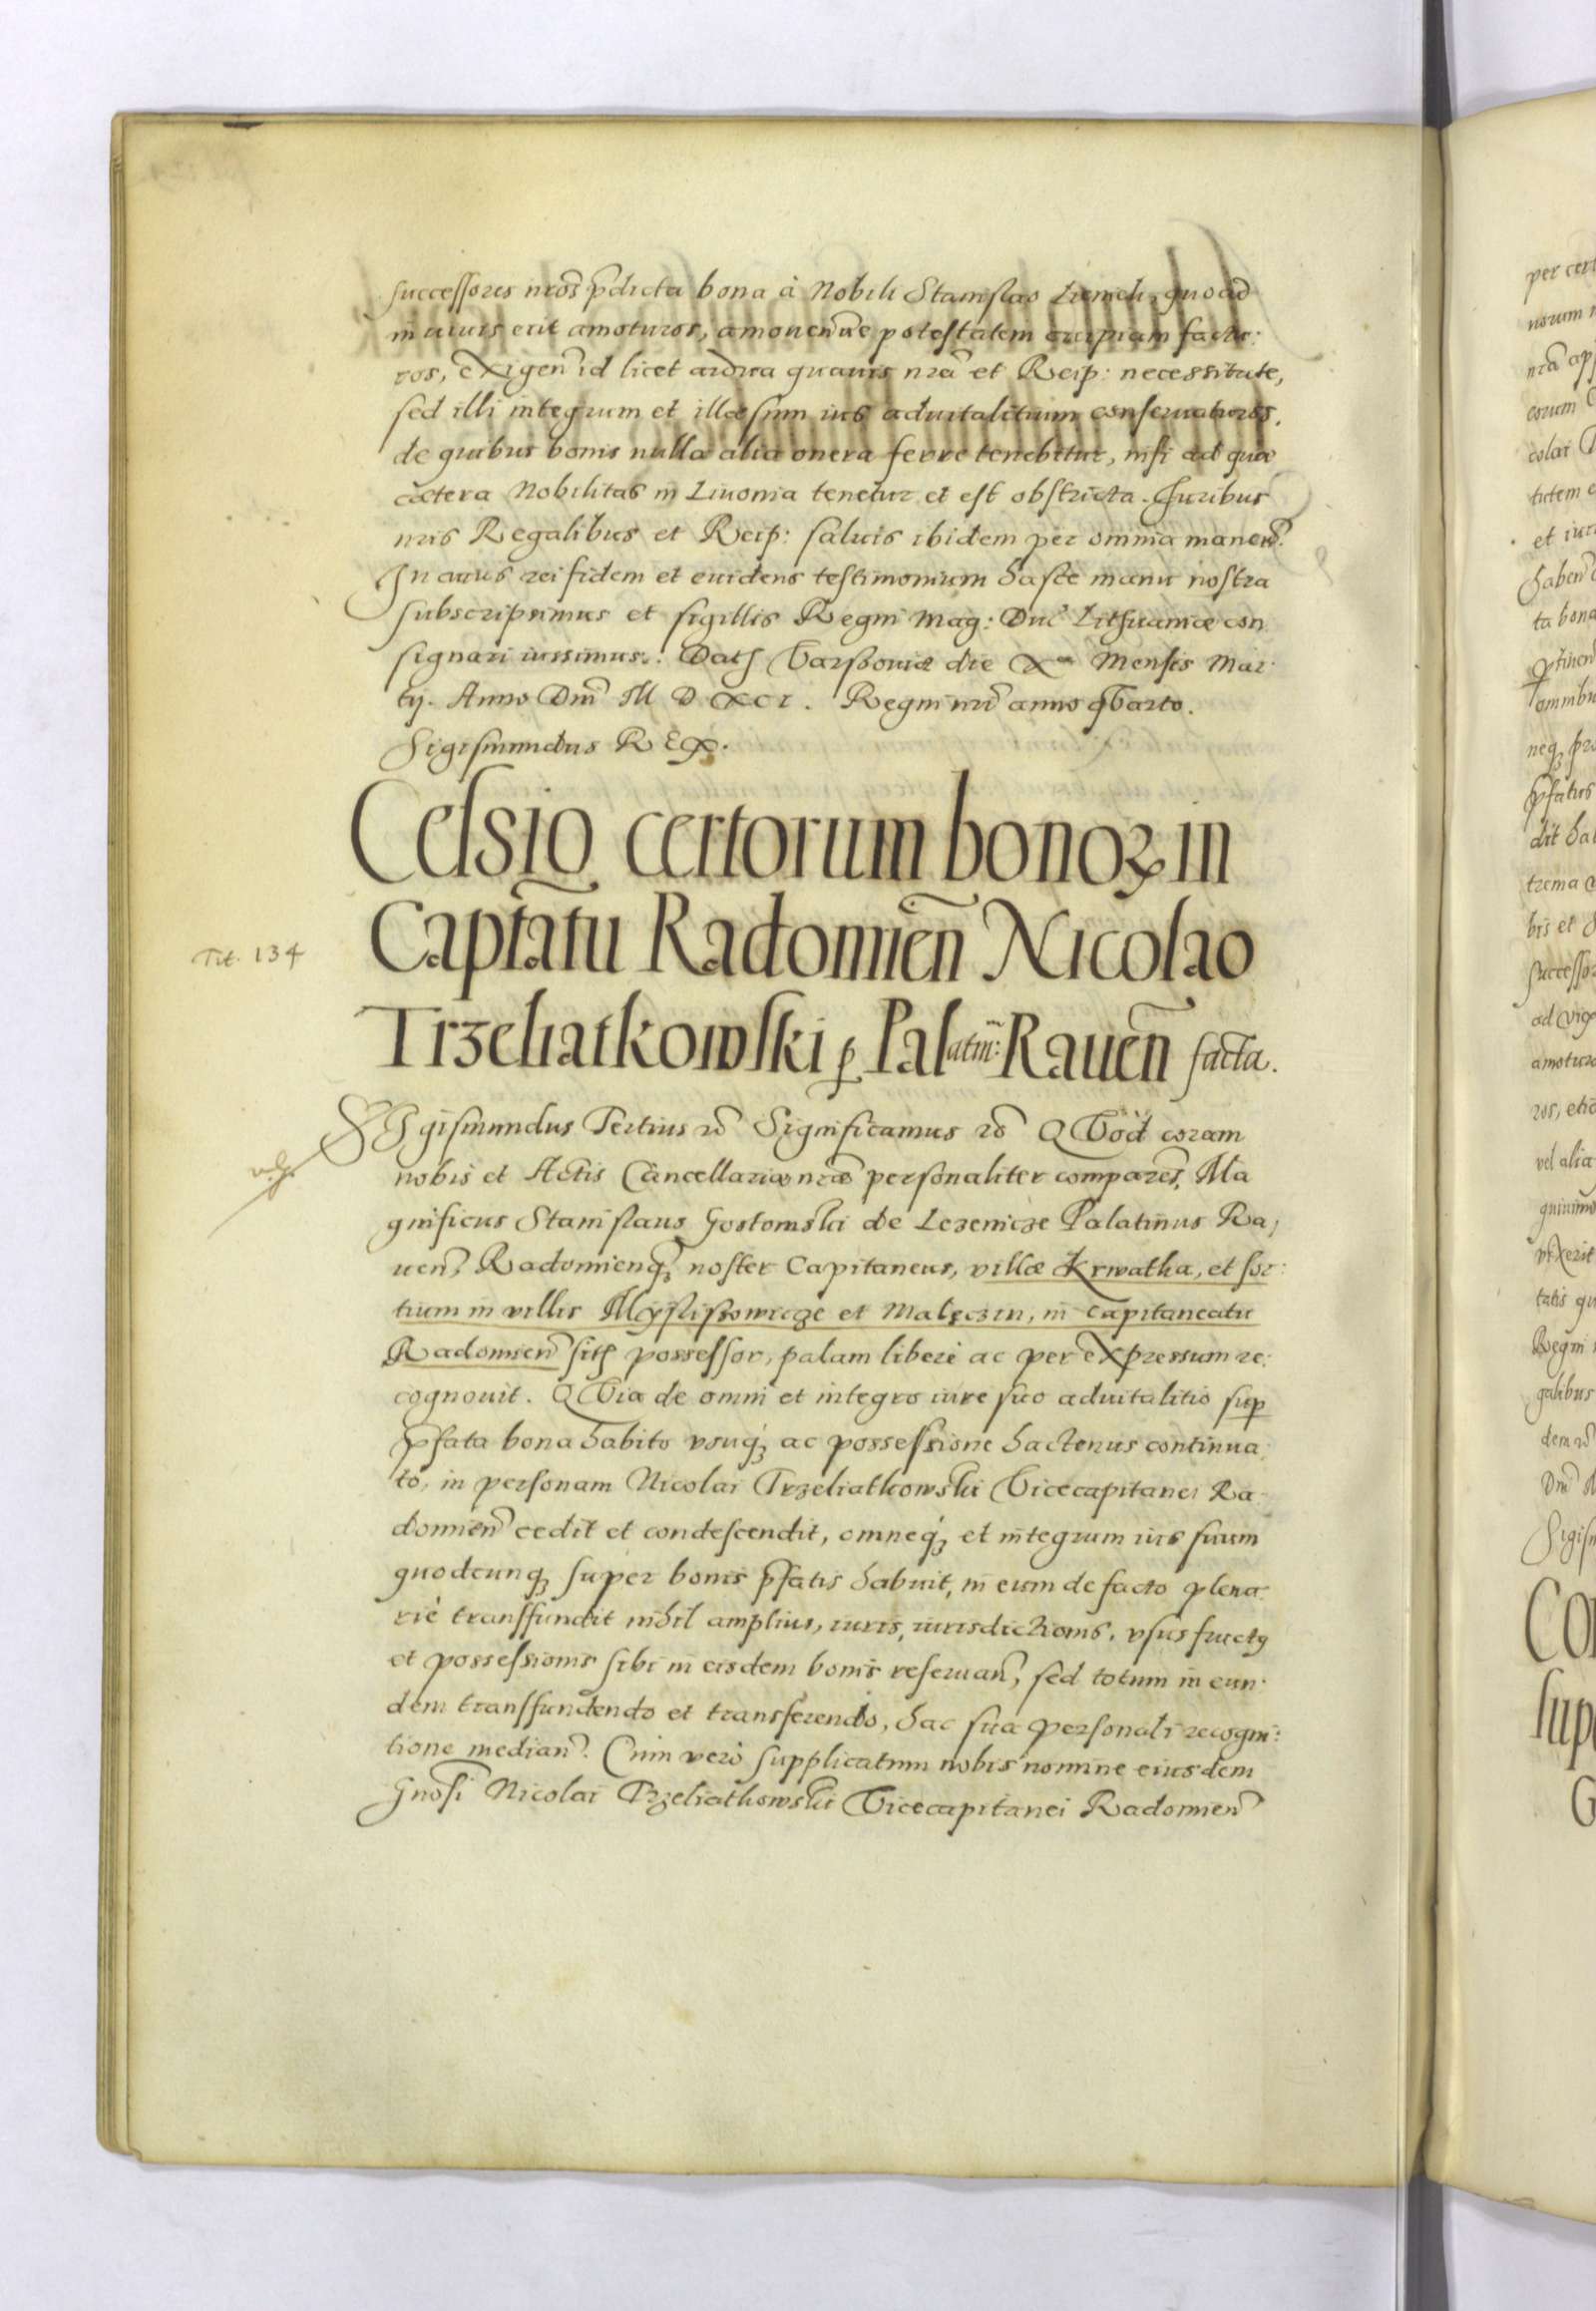 successores nros pdicta bona à Nobili Stanislao Liemek, quoad
in viuis erit amoturos, amouendiue potestatem cuipiam factu:
ros, exigen id licet ardua quauis nra et Reip: necessitate,
sed illi integrum et illæsum ius aduitalitium conseruaturos.
de quibus bonis nulla alia onera ferre tenebitur, nisi ad quæ
cætera Nobilitas in Liuonia tenetur et est obstricta. Iuribus
nris Regalibus et Reip: saluis ibidem per omnia manen.
In cuius rei fidem et euidens testimonium hasce manu nostra
subscripsimus et sigillis Regni Mag: Duc Lithuaniæ con
signari iussimus. Dat Varssouiæ die Xa Mensis Mar
tÿ. Anno Dni M D XCI. Regni nri anno qVarto.
Sigismundus REX.
Cessio certorum bonoꝝ in
Captatu Radomien Nicolao
Trzeliatkowski ꝑ Palatin: Rauen facta.
Tit. 134
SIgismundus Tertius ꝛc Significamus ꝛc QVod coram
nobis et Actis Cancellariæ nræ personaliter comparens, Ma
gnificus Stanislaus Gostomski de Lezenicze Palatinus Ra,
uen, Radomienq₃ noster Capitaneus, villæ Krwatka, et sor:
tium in villis Myslissowicze et Malęczin, in Capitaneatu
Radomien sit possessor, palam liberè ac per expressum re:
cognouit. QVia de omni et integro iure suo aduitalitio sup
pfata bona habito vsuq₃ ac possessione hactenus continua
to, in personam Nicolai Trzeliatkowski Vicecapitanei Ra
domien cedit et condescendit, omneq₃ et integrum ius suum
quodcunq₃ super bonis pfatis habuit, in eum de facto plena
riè transfundit nihil amplius, iuris, iurisdictionis, vsus fructꝰ
et possessionis sibi in eisdem bonis reseruan, sed totum in eun
dem transfundendo et transferendo, hac sua personali recogni:
tione median. Cum verò supplicatum nobis nomine eiusdem
Gnosi Nicolai Trzeliatkowski Vicecapitanei Radomien